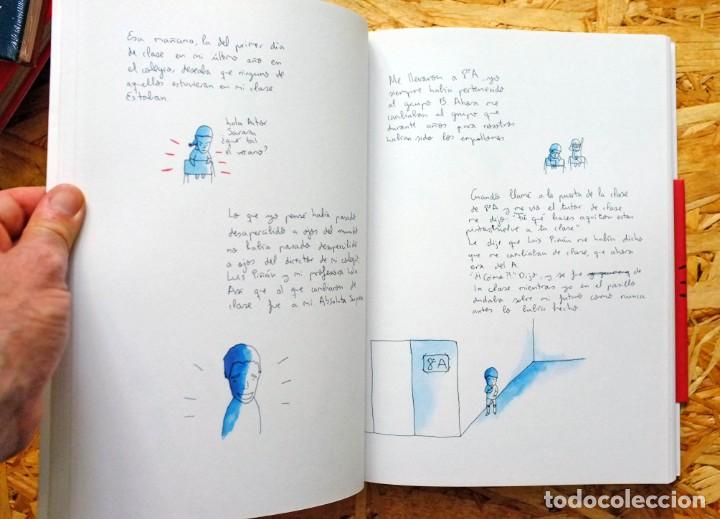 Esa mañana, la del primer día
de clase en mi último año en
el colegio, deseaba que ninguno de
aquellos estuvieran en mi clase
Estaban.
hola Aitor
Saraza
¿qué tal
el verano?
Lo que yo pensé había pasado
desapercibido a ojos del mundo
no había pasado desapercibido
a ojos del director de mi colegio
Luis Piñán y mi profesora Lola
Así que al que cambiaron de
clase fue a mi. Absoluta
Me llevaron a 8ºA, yo
siempre había pertenecido
al grupo B. Ahora me
cambiaban al grupo que
durante años para nosotros
habían sido los empollones.
Cuando llamé a la puerta de la clase
de 8ºA y me vio el tutor de clase
me dijo "Tú qué haces aquí con estas
pintas, vuelve a tu clase"
Le dije que Luis Piñán me había dicho
que me cambiaban de clase, que ahora
era del A.
"¿¡Cómo?!" Dijo, y se fue
de
la clase mientras yo en el pasillo
dudaba sobre mi futuro como nunca
antes lo había hecho.
8ºA
todocoleccion